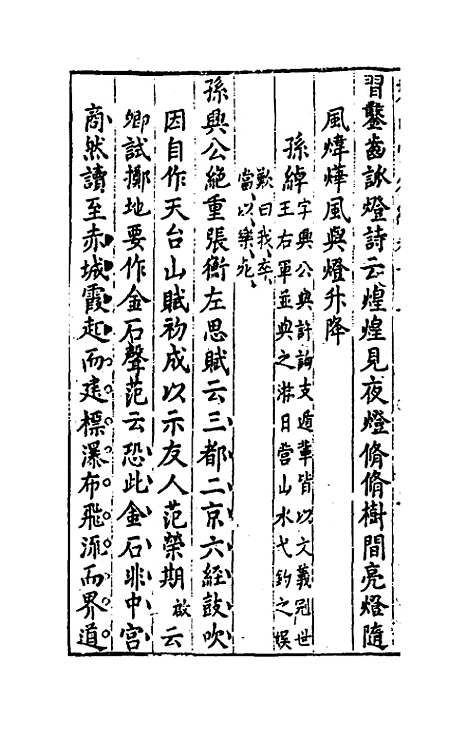 習鑿齒詠燈詩云煌煌見夜燈脩脩樹間亮燈隨
風煒燁風與燈升降
孫綽字興公與許詢支遁輩皆以文義冠世
王右軍並與之游日營山水弋釣之娛
歎曰我卒
當以樂死
孫興公絶重張衡左思賦云三都二京六經鼓吹
因自作天台山賦初成以示友人范榮期啟云
卿試擲地要作金石聲范云恐此金石非中宫
商然讀至赤城霞起而建標瀑布飛流而界道